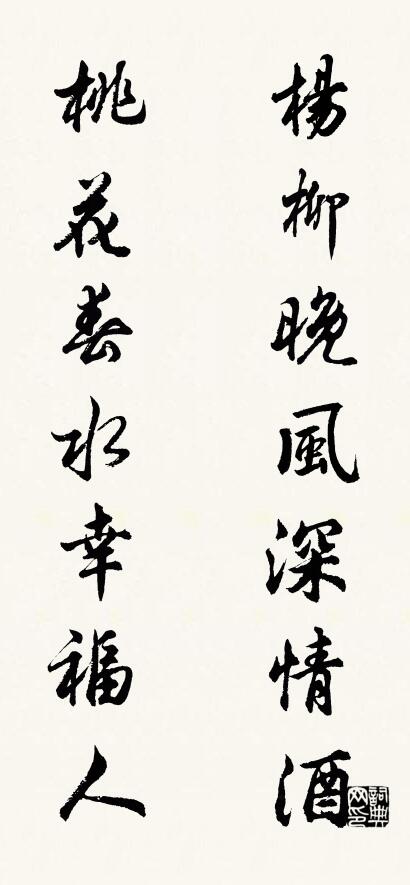 楊柳晚風深情酒
桃花春水幸福人
詞典網印